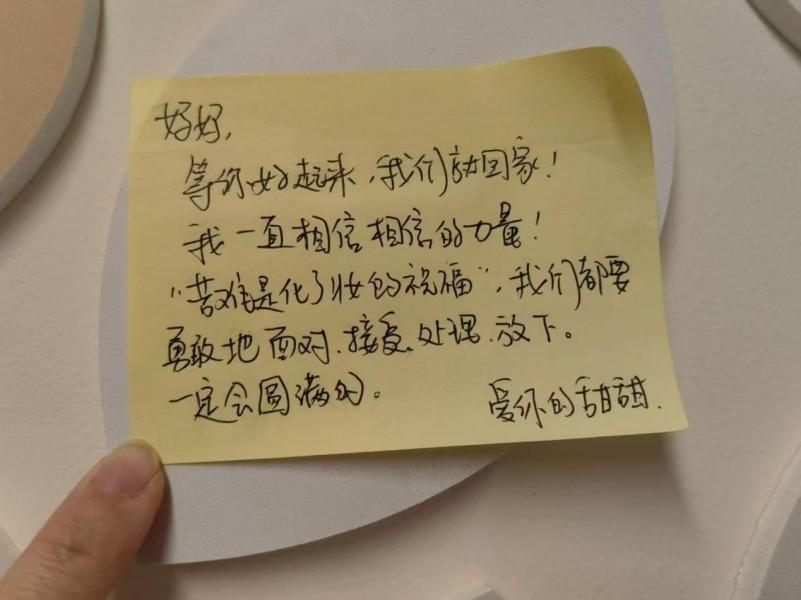 好好，
等你好起来，我们就回家！
我一直相信相信的力量！
“苦难是化了妆的祝福”，我们都要
勇敢地面对、接受、处理、放下。
一定会圆满的。
爱你的甜甜.